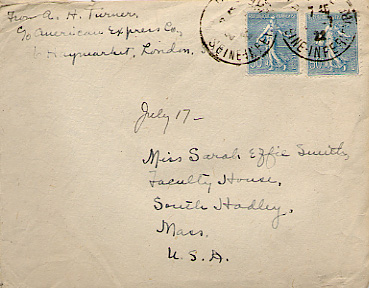 From A. H. Turner,
c/o American Express Co.,
6 Haymarket, London.
SEINE-INFRE
SEINE-INFRE
22
July 17-
Miss Sarah Effie Smith,
Faculty House,
South Hadley,
Mass.
U. S. A.